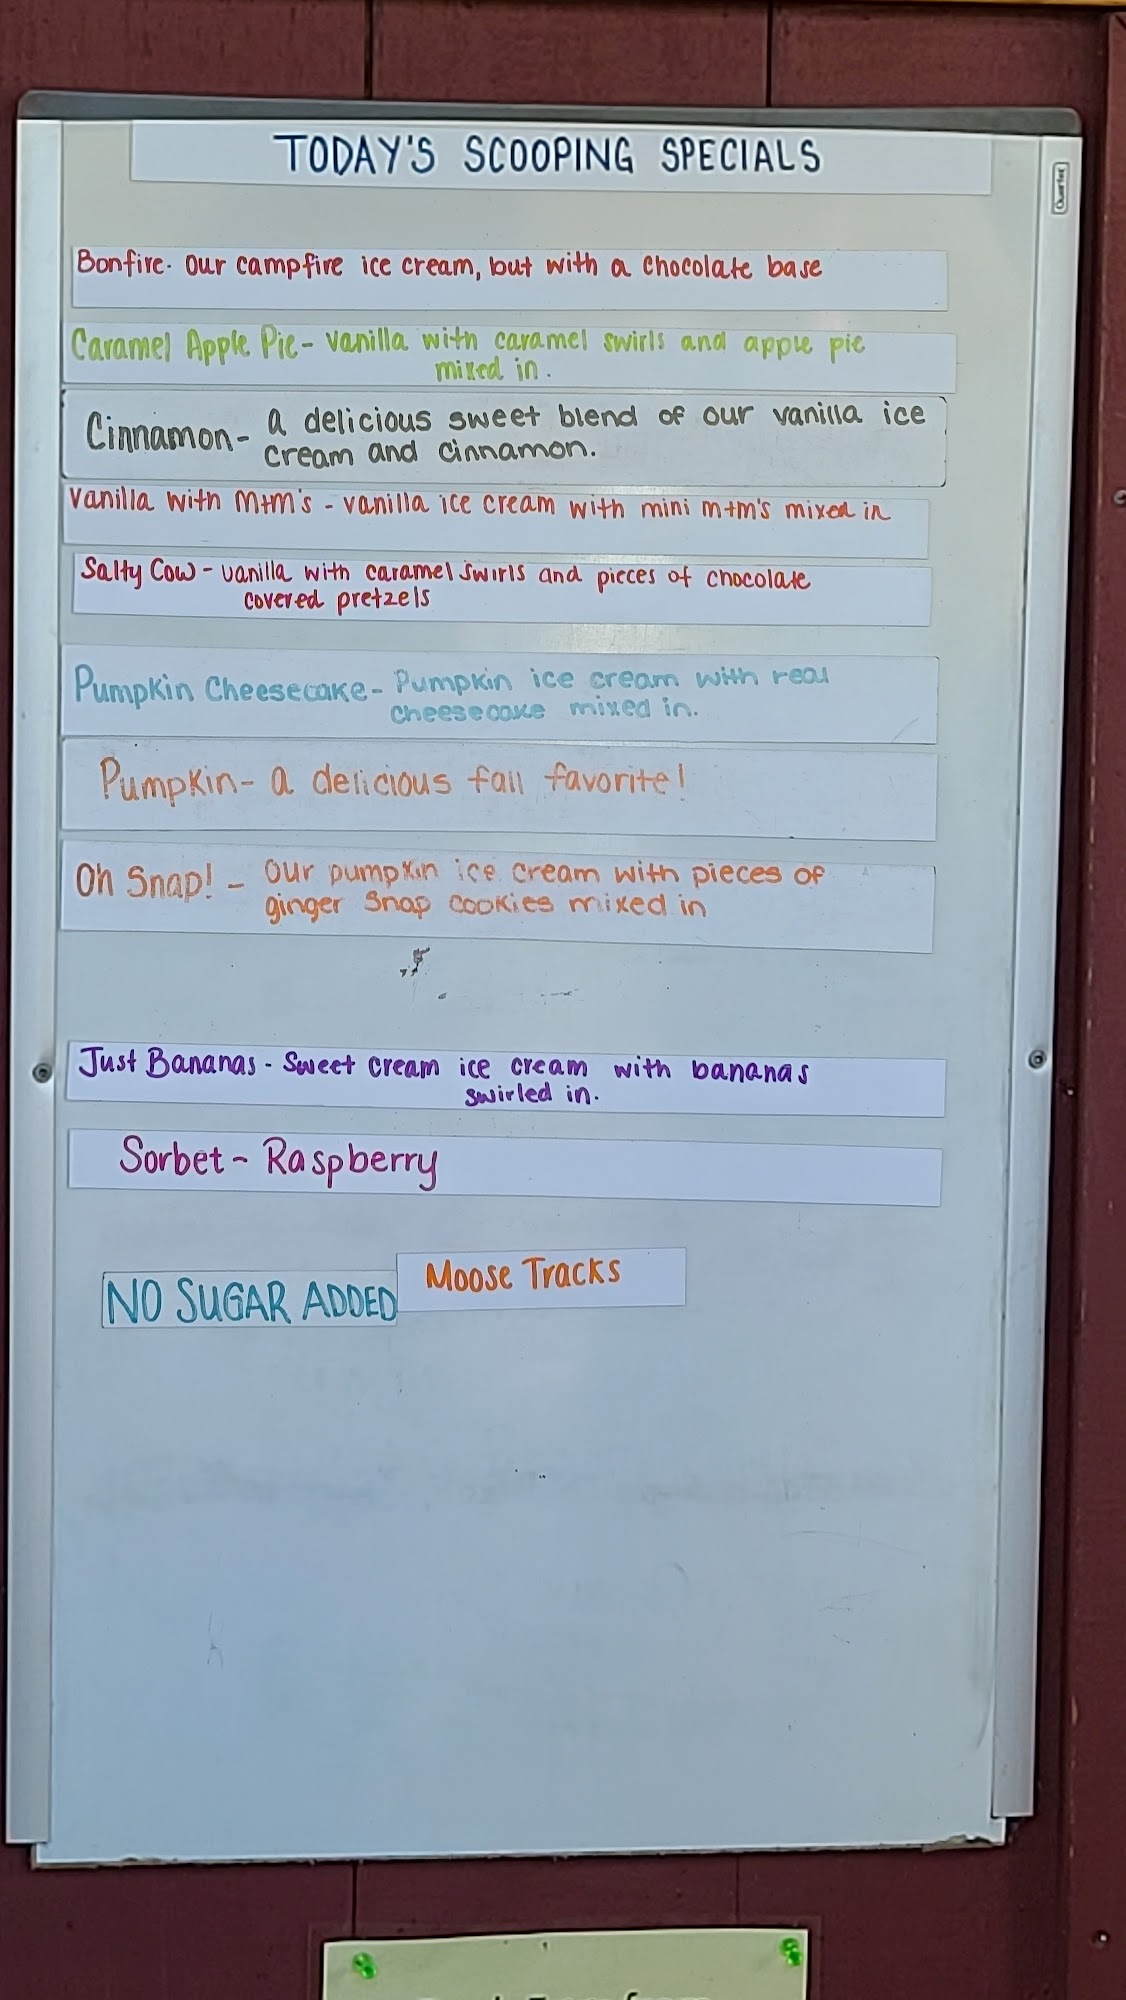 TODAY'S SCOOPING SPECIALS
Quartet
Bonfire- Our campfire ice cream, but with a chocolate base
Caramel Apple Pie- vanilla with caramel swirls and apple pie
mixed in.
Cinnamon- a delicious sweet blend of our vanilla ice
cream and cinnamon.
Vanilla with M+M's - vanilla ice cream with mini m+m's mixed in
Salty Cow - vanilla with caramel swirls and pieces of chocolate
covered pretzels
Pumpkin Cheesecake- Pumpkin ice cream with real
cheesecake mixed in.
Pumpkin- a delicious fall favorite!
Oh Snap! - Our pumpkin ice cream with pieces of
ginger snap cookies mixed in
Just Bananas - Sweet cream ice cream with bananas
swirled in.
Sorbet- Raspberry
NO SUGAR ADDED Moose Tracks